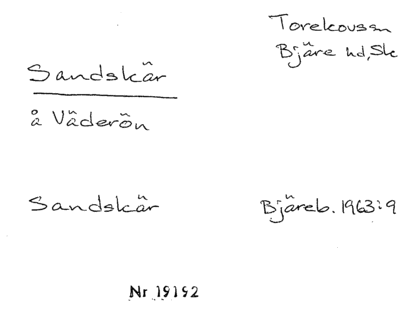 Torekovssn
Bjäre hd, Sk
Sandskär
å Väderön
Sandskär
Bjäreb. 1963:9
Nr 19192